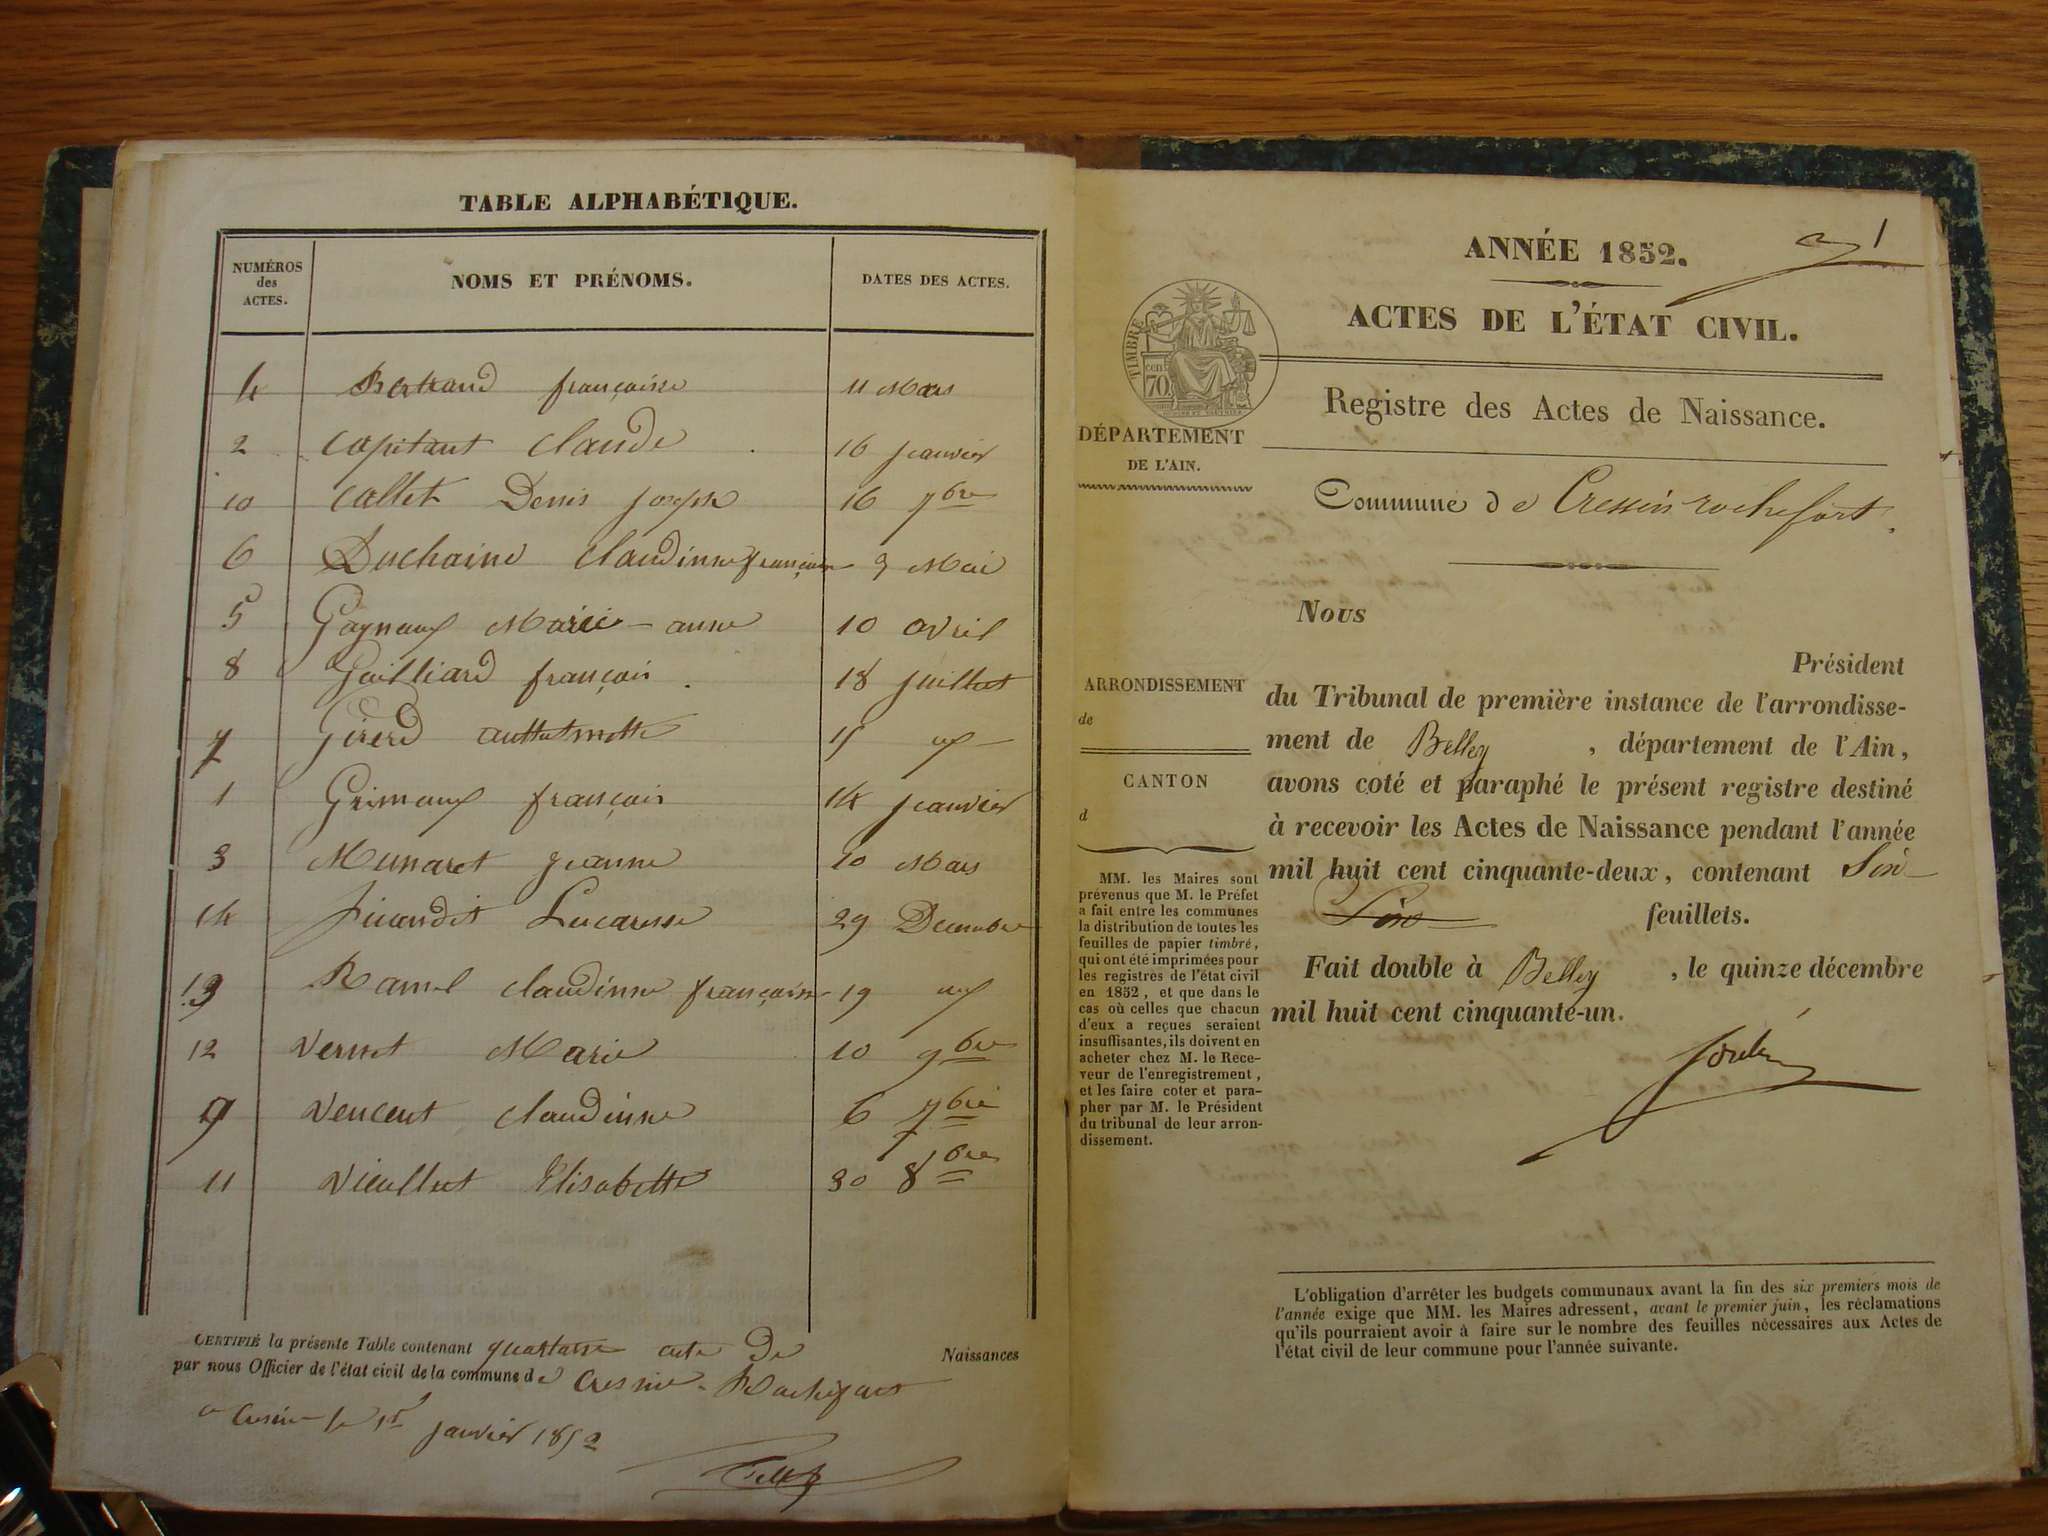 TABLE ALPHABÉTIQUE.
NUMÉROS des ACTES. NOMS ET PRÉNOMS. DATES DES ACTES.
4 Bertrand françoise 11 Mars
2 Capitant Claude 16 janvier
10 Callet Denis joseph 16 7bre
6 Duchaine Claudinne françoise 3 Mai
5 Gagneux Marie-anne 10 avril
8 Gailliard françois 18 juillet
7 Girerd 15
1 Grimaux françois 14 janvier
3 Munaret jeanne 10 Mars
14 29 Decembre
13 Ramel claudinne françoise 19
12 Vernet Marie 10 9bre
9 Vencent claudinne 6 7bre
11 Vieullet Elisabette 30 8bre
CERTIFIÉ la présente Table contenant quattorse acte de Naissances
par nous Officier de l'état civil de la commune de Cressin-Rochefort
a Cressin le 1er janvier 1852
1
ANNÉE 1852.
ACTES DE L'ÉTAT CIVIL.
TIMBRE
cent
70
Registre des Actes de Naissance.
DÉPARTEMENT
DE L'AIN.
Commune de Cressin rochefort.
Nous
Président
du Tribunal de première instance de l'arrondisse-
ment de Belley, département de l'Ain,
avons coté et paraphé le présent registre destiné
à recevoir les Actes de Naissance pendant l'année
mil huit cent cinquante-deux, contenant
feuillets.
Fait double à Belley, le quinze décembre
mil huit cent cinquante-un.
ARRONDISSEMENT
de
CANTON
d
MM. les Maires sont
prévenus que M. le Préfet
a fait entre les communes
la distribution de toutes les
feuilles de papier timbré,
qui ont été imprimées pour
les registres de l'état civil
en 1852, et que dans le
cas où celles que chacun
d'eux a reçues seraient
insuffisantes, ils doivent en
acheter chez M. le Rece-
veur de l'enregistrement,
et les faire coter et para-
pher par M. le Président
du tribunal de leur arron-
dissement.
L'obligation d'arrêter les budgets communaux avant la fin des six premiers mois de
l'année exige que MM. les Maires adressent, avant le premier juin, les réclamations
qu'ils pourraient avoir à faire sur le nombre des feuilles nécessaires aux Actes de
l'état civil de leur commune pour l'année suivante.